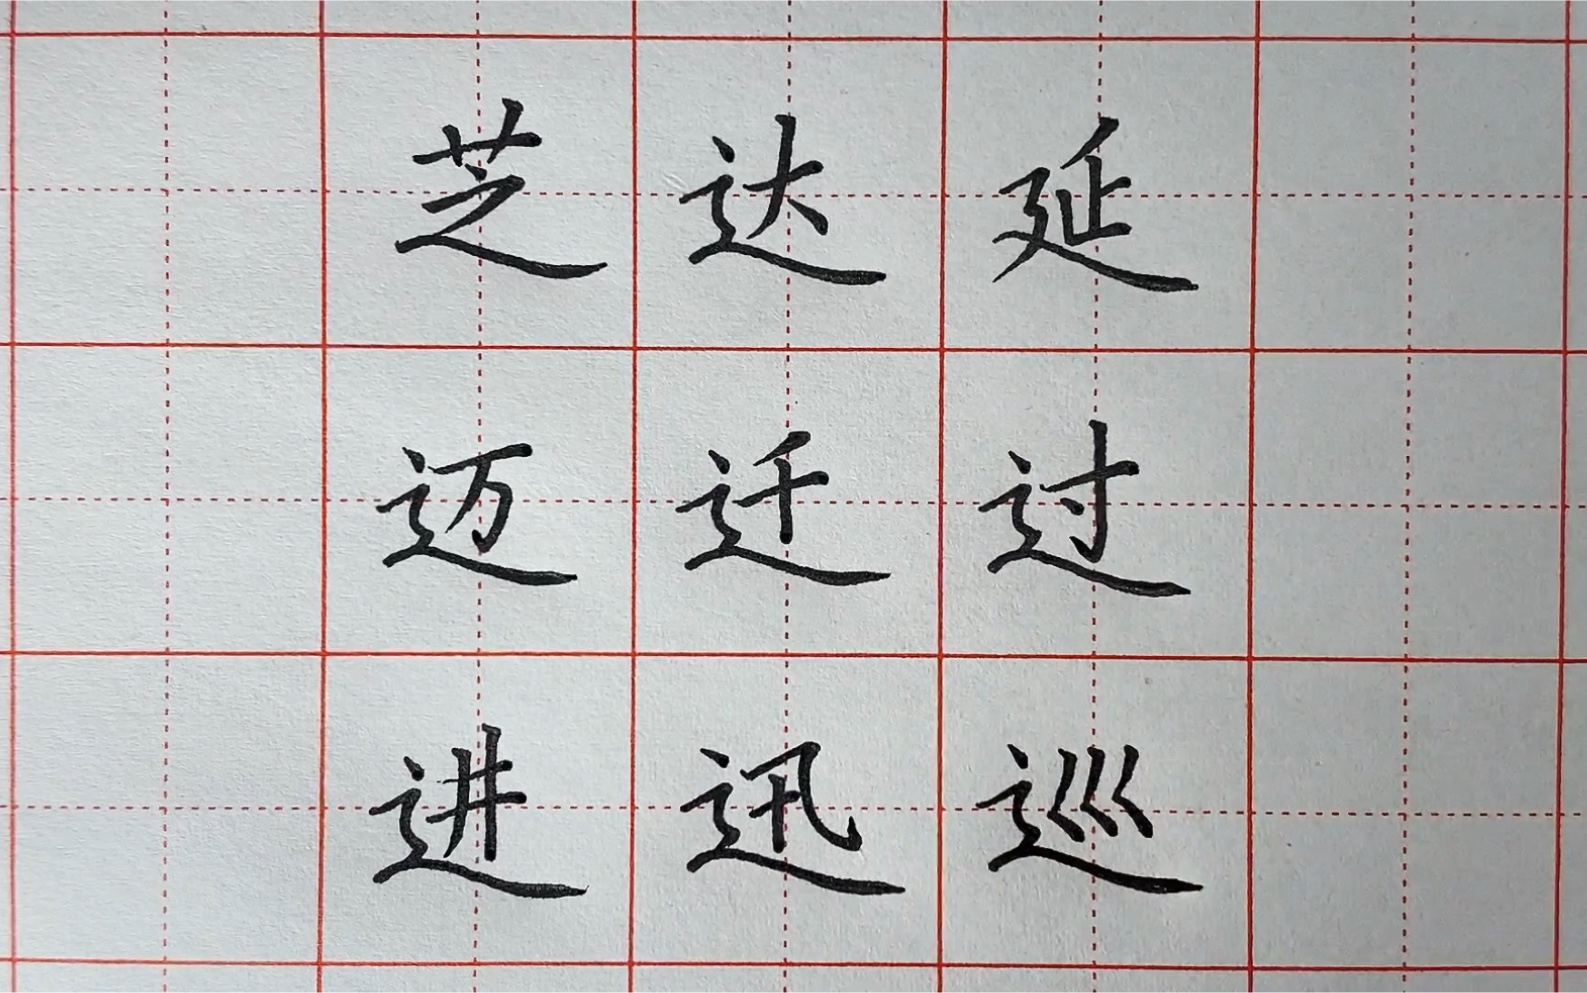 芝达延
迈迁过
进迅巡